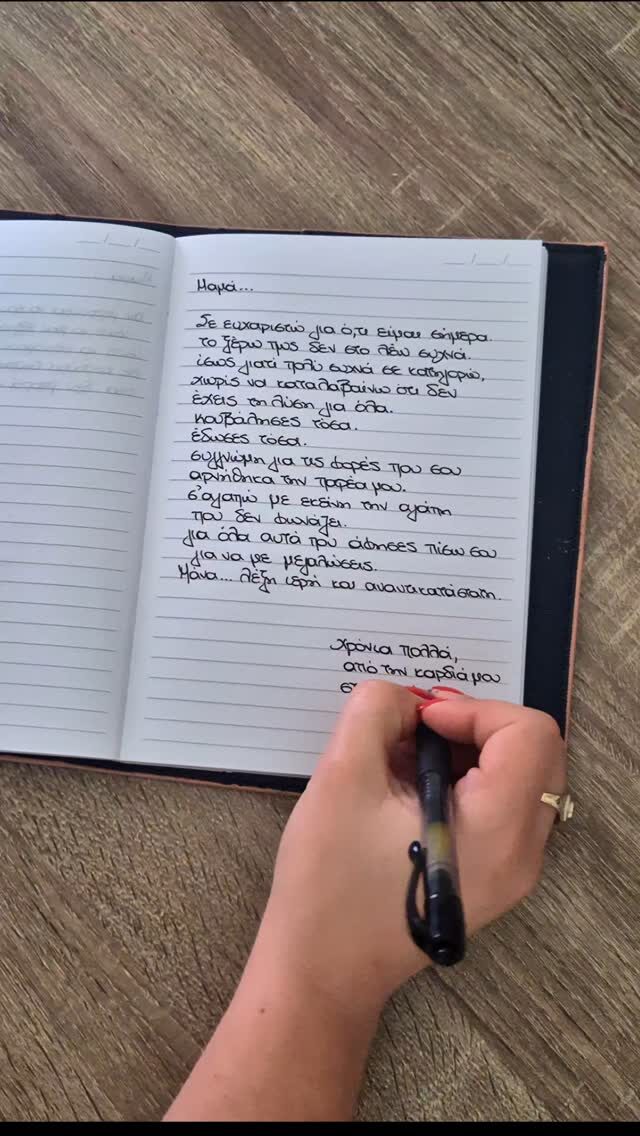 Μαμά...
Σε ευχαριστώ για ό,τι είμαι σήμερα.
το ξέρω πως δεν στο λέω συχνά.
ίσως γιατί πολύ συχνά σε κατηγορώ,
χωρίς να καταλαβαίνω ότι δεν
έχεις τη λύση για όλα.
κουβάλησες τόσα.
έδωσες τόσα.
συγγνώμη για τις φορές που σου
αρνήθηκα την παρέα μου.
σ'αγαπώ με εκείνη την αγάπη
που δεν φωνάζει.
για όλα αυτά που άφησες πίσω σου
για να με μεγαλώσεις.
Μάνα... λέξη ιερή και αναντικατάστατη.
χρόνια πολλά,
από την καρδιά μου